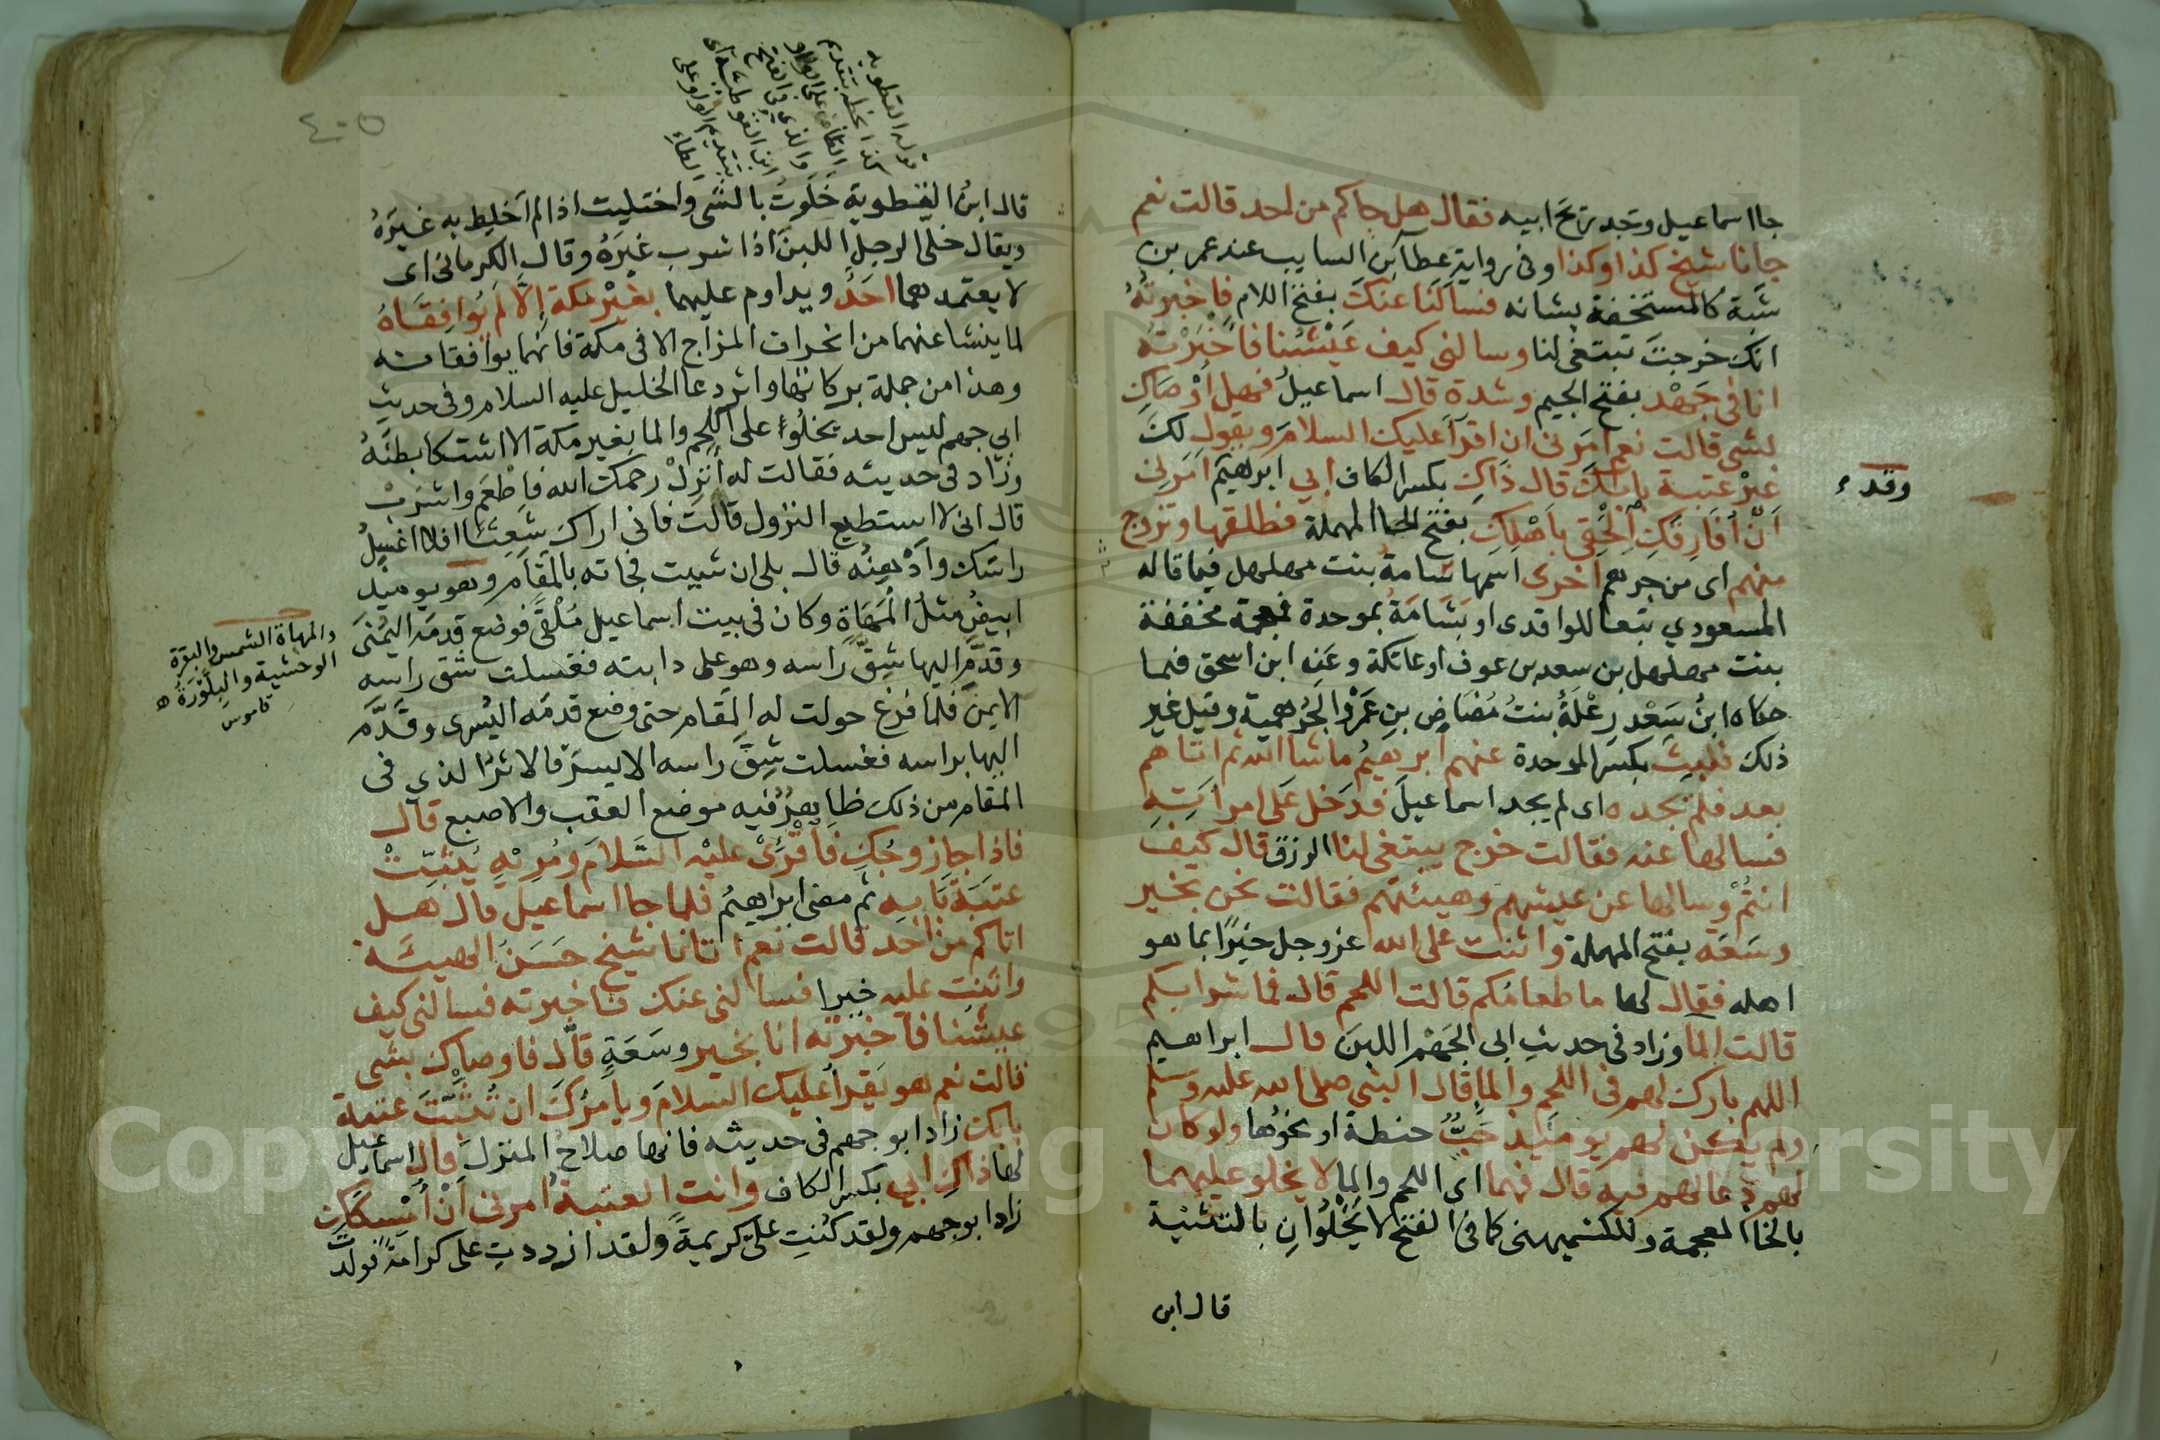 جاا سماعيل وتجد ريح ابيه فقال هل جاكم من احد قالت نعم
جانا شيخ كذا وكذا وفى رواية عطا بن السايب عند عمر بن
شبة كالمستخفة بشانه فسالنا عنك بفتح اللام فاخبرته
انك خرجت تبتغى لنا وسالنى كيف عيشنا فاخبرته
انا فى جهد بفتح الجيم وشدة قال اسماعيل فهل اوصاك
بشى قالت نعم امرنى ان اقرا عليك السلام ويقول لك
غير عتبة بابك قال ذاك بكسر الكاف ابي ابرهيم امرنى
وقد
ان افارقك الحقى باهلك بفتح الحا المهملة فطلقها وتزوج
منهم اى من جرهم اخرى اسمها سامة بنت مهلهل فيما قاله
المسعودي تبعا للواقدى او بشامة بموحدة فمعجمة مخففة
بنت مهلهل بن سعد بن عوف او عاتكة وعن ابن اسحق فيما
حكاه ابن سعد رعلة بنت مضاض بن عمرو الجرهمية وقيل غير
ذلك فلبث بكسر الموحدة عنهم ابرهيم ماشا الله ثم اتاهم
بعد فلم يجده اى لم يجد اسماعيل فدخل على امراته
فسالها عنه فقالت خرج يبتغى لنا الرزق قال كيف
انتم وسالها عن عيشهم وهيئتهم فقالت نحن بخير
وسعة بفتح المهملة واثنت على الله عز وجل خيرا بما هو
اهله فقال لها ما طعامكم قالت اللحم قال فما شرابكم
قالت الما وزاد فى حديث ابى الجهم اللبن قال ابراهيم
اللهم بارك لهم فى اللحم والما قال النبى صلى الله عليه وسلم
ولم يكن لهم يوميذ حب حنطة او نحوها ولو كان
لهم دعا لهم فيه قال فهما اى اللحم والما لا يخلو عليهما
بالخا المعجمة وللكشميهنى كما فى الفتح لا يخلوان بالتثنية
قال ابن
٤٠٥
قوله القطويه
كذا بخطه بتقديم
القاف على الواو
والذى فى الفتح
ابن القوطية اى
بتقديم الواو على
الطاء
قال ابن القطوية خلوت بالشى واختليت اذا لم اخلط به غيره
ويقال خلى الرجل اللبن اذا شرب غيره وقال الكرمانى اى
لا يعتمدهما احد ويداوم عليهما بغير مكة الا لم يوافقاه
لما ينشا عنهما من انحراف المزاج الا فى مكة فانهما يوافقانه
وهذا من جملة بركاتها واثر دعا الخليل عليه السلام وفى حديث
ابى جهم ليس احد يخلو على اللحم والما بغير مكة الا اشتكا بطنه
وزاد فى حديثه فقالت له انزل رحمك الله فاطعم واشرب
قال انى لا استطيع النزول قالت فانى اراك شعثا افلا اغسل
راسك وادهنه قال بلى ان شيت فجاته بالمقام وهو يوميذ
ابيض مثل المهاة وكان فى بيت اسماعيل ملقى فوضع قدمه اليمنى
والمهاة الشمس والبقرة
الوحشية والبلورة ه
قاموس
وقدم اليها شق راسه وهو على دابته فغسلت شق راسه
الايمن فلما فرغ حولت له المقام حتى وضع قدمه اليسرى وقدم
اليها براسه فغسلت شق راسه الايسر فالاثر الذي فى
المقام من ذلك ظاهر فيه موضع العقب والاصبع قال
فاذا جا زوجك فاقرئ عليه السلام ومريه يثبت
عتبة بابه ثم مضى ابراهيم فلما جاا سماعيل قال هل
اتاكم من احد قالت نعم اتانا شيخ حسن الهيئة
واثنت عليه خيرا فسالنى عنك فاخبرته فسالنى كيف
عيشنا فاخبرته انا بخير وسعة قال فاوصاك بشى
قالت نعم هو يقرا عليك السلام ويامرك ان تثبت عتبة
بابك زاد ابو جهم فى حديثه فانها صلاح المنزل قال اسماعيل
لها ذاك ابي بكسر الكاف وانت العتبة امرنى ان امسكك
زاد ابو جهم ولقد كنت على كريمة ولقد ازددت على كرامة فولدت